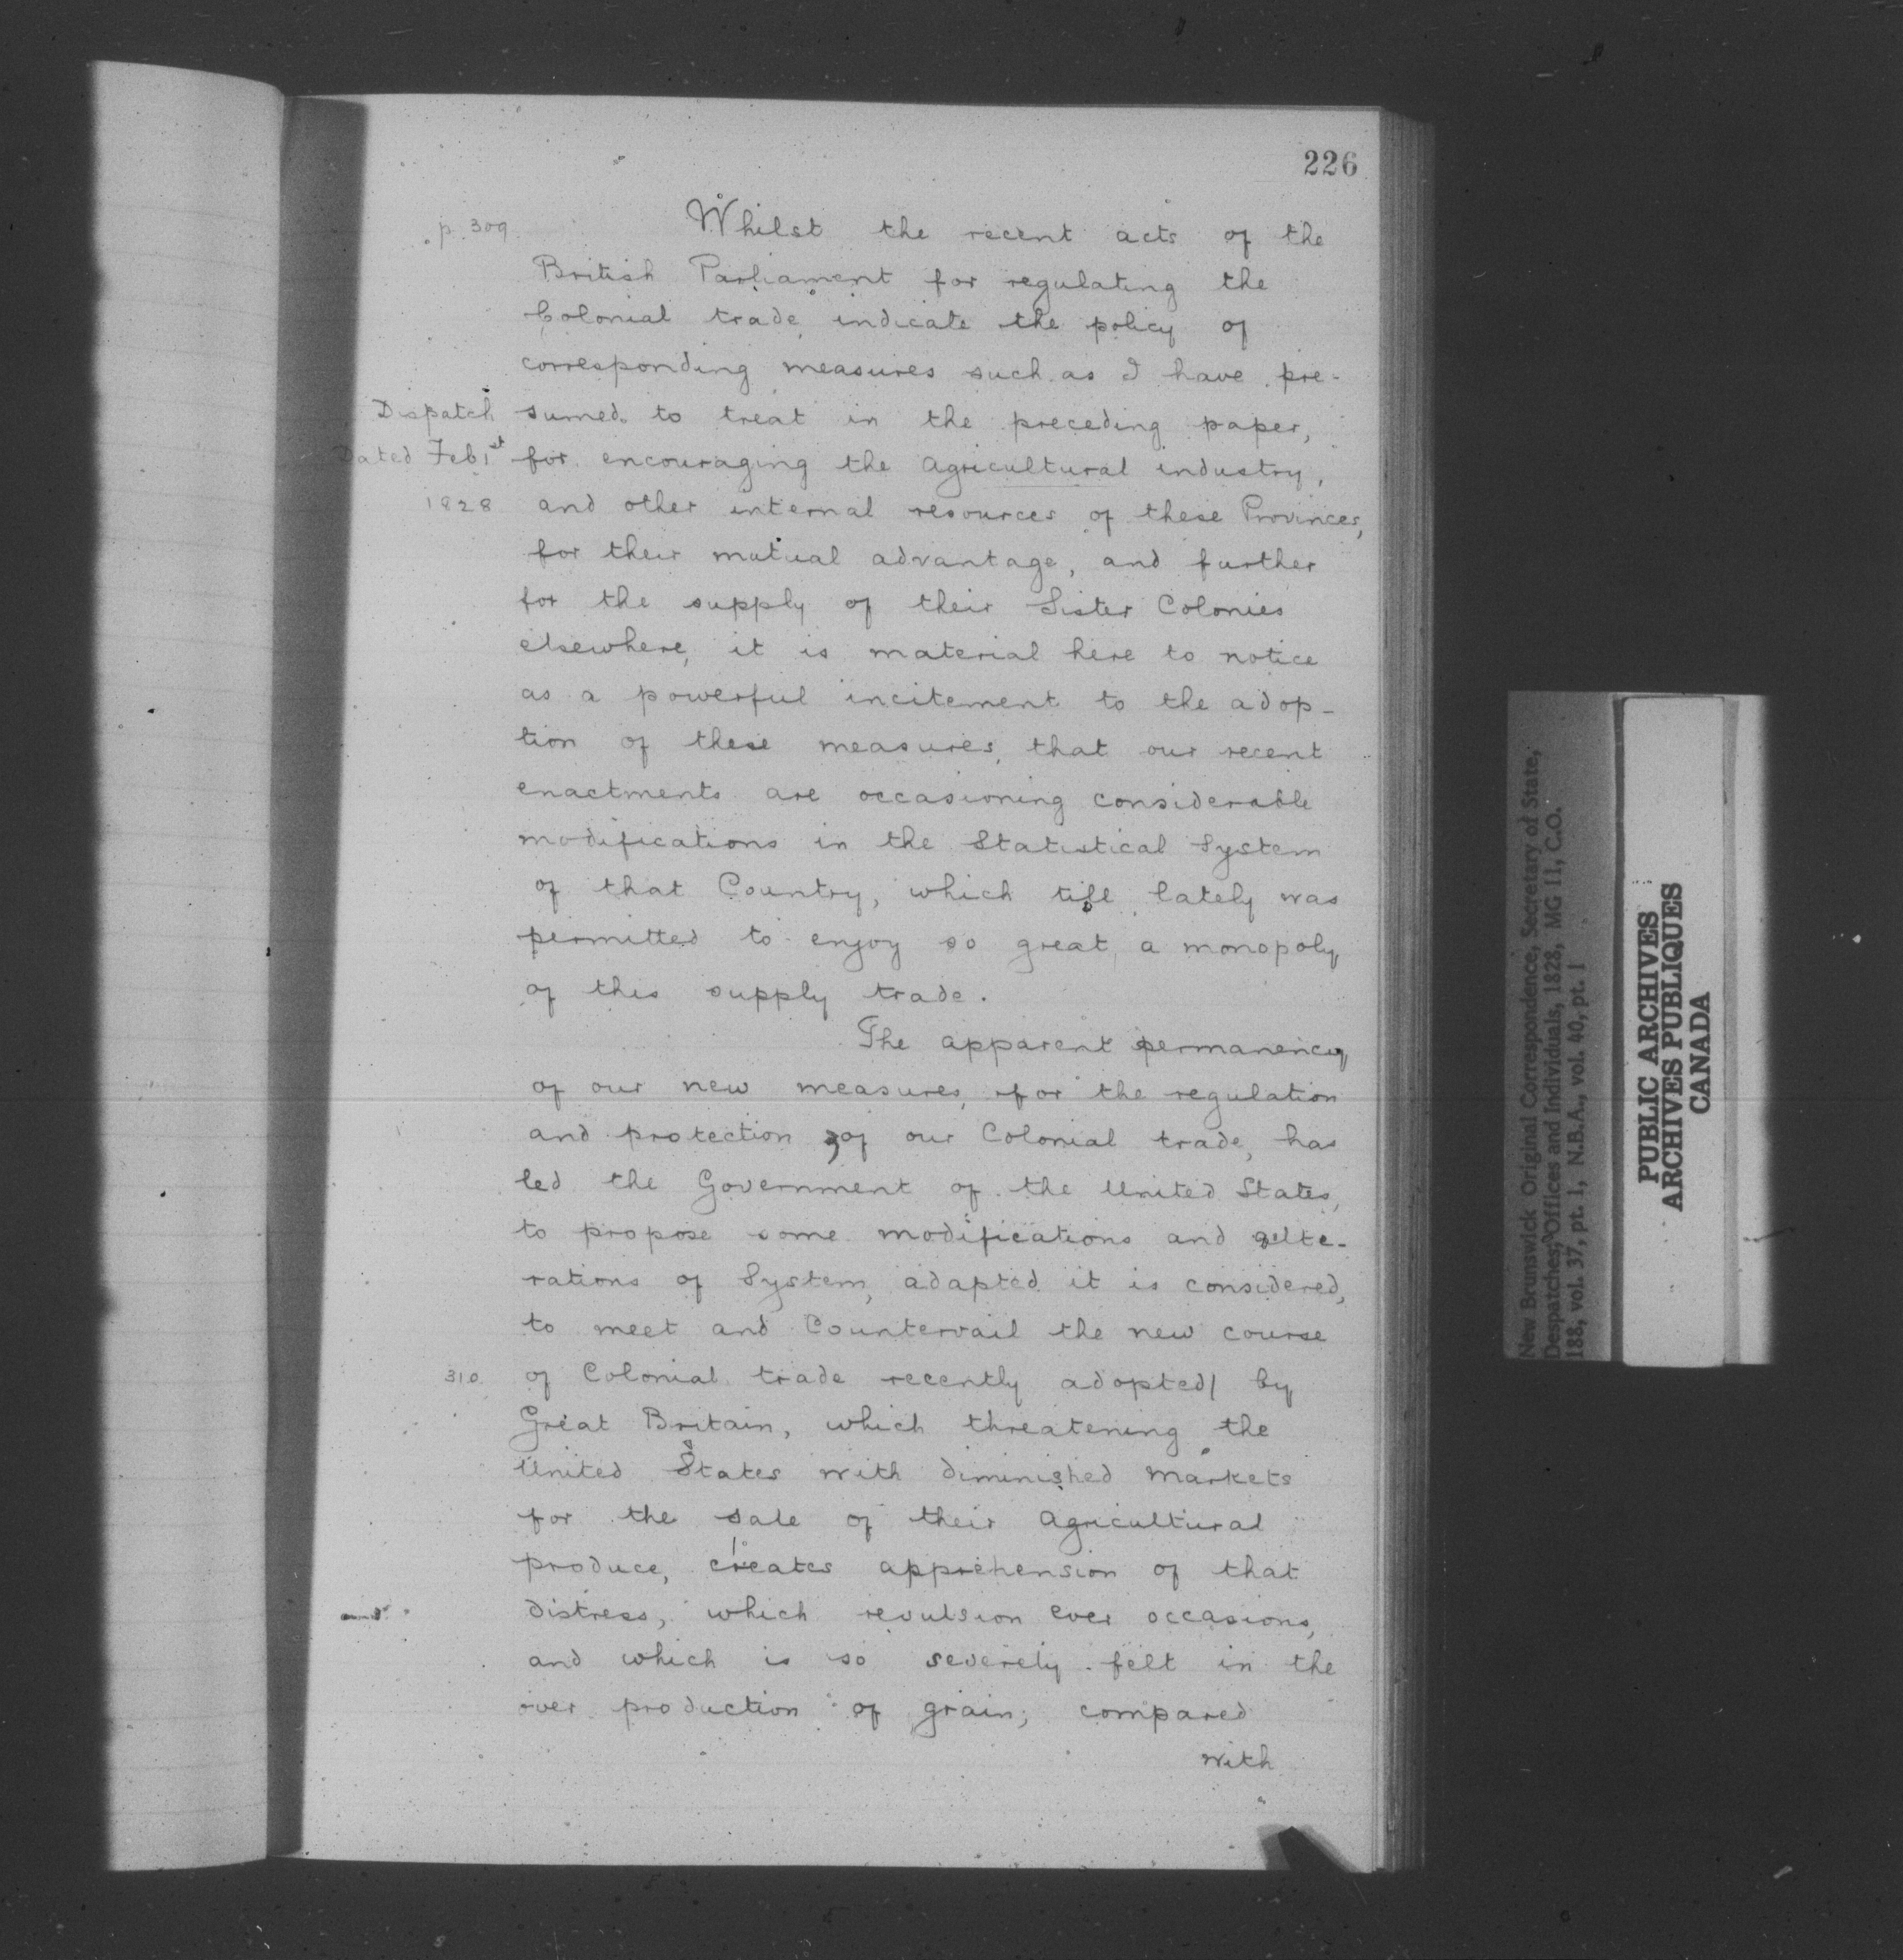 226
p. 309.
Whilst the recent acts of the
British Parliament for regulating the
Colonial trade, indicate the policy of
corresponding measures such as I have pre-
Dispatch
sumed to treat in the preceding paper,
Dated Feb 1st
for encouraging the agricultural industry,
1828
and other internal resources of these Provinces,
for their mutual advantage, and further
for the supply of their Sister Colonies
elsewhere, it is material here to notice
as a powerful incitement to the adop-
tion of these measures, that our recent
enactments are occasioning considerable
modifications in the Statistical System
of that Country, which till lately was
permitted to enjoy so great a monopoly
of this supply trade.
The apparent permanency
of our new measures, for the regulation
and protection, of our Colonial trade, has
led the Government of the United States,
to propose some modifications and alte-
rations of System, adapted it is considered,
to meet and Countervail the new course
310.
of Colonial trade recently adopted/ by
Great Britain, which threatening the
United States with diminished markets
for the sale of their agricultural
produce, creates apprehension of that
distress, which revulsion ever occasions,
and
and which is so severely felt in the
over production of grain, compared
with
New Brunswick Original Correspondence, Secretary of State,
Despatches, Offices and Individuals, 1828, MG 11, C.O.
188, vol. 37, pt. 1, N.B.A., vol. 40, pt. 1
PUBLIC ARCHIVES
ARCHIVES PUBLIQUES
CANADA